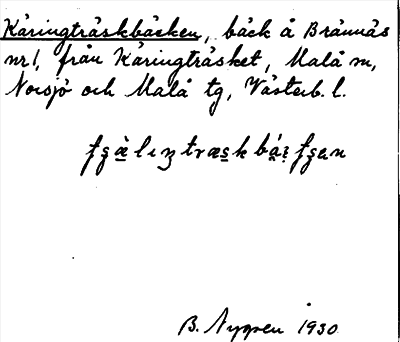 Käringträskbäcken, bäck å Brännäs
nr 1, från Käringträsket, Malå sn,
Norsjö och Malå tg, Västerb. l.
B. Nygren 1930